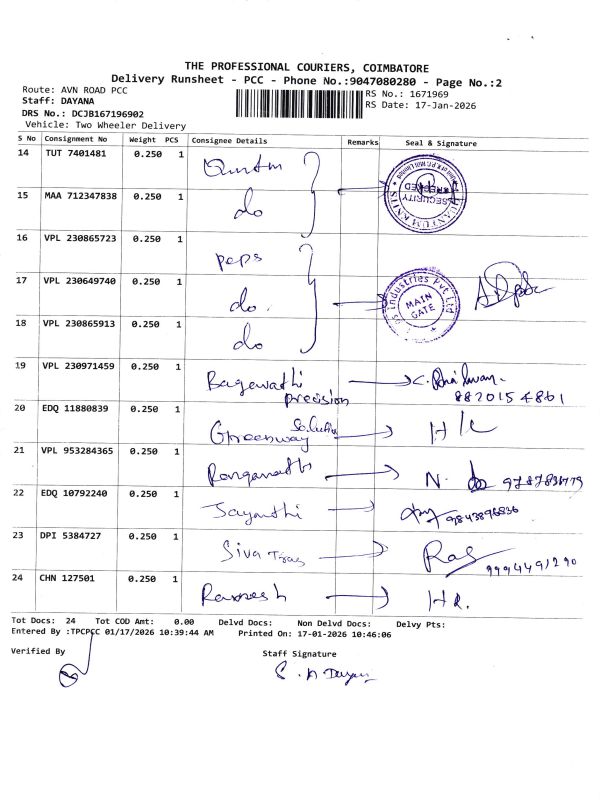 THE PROFESSIONAL COURIERS, COIMBATORE
Delivery Runsheet - PCC - Phone No.:9047080280 - Page No.:2
Route: AVN ROAD PCC
RS No.: 1671969
Staff: DAYANA
RS Date: 17-Jan-2026
DRS No.: DCJB167196902
Vehicle: Two Wheeler Delivery
S No Consignment No Weight PCS Consignee Details Remarks Seal & Signature
14 TUT 7401481 0.250 1
15 MAA 712347838 0.250 1 do
SECURITY
16 VPL 230865723 0.250 1 peps
17 VPL 230649740 0.250 1 do.
Industries Pvt Ltd
MAIN GATE
18 VPL 230865913 0.250 1 do
19 VPL 230971459 0.250 1 Bagewathi precision
20 EDQ 11880839 0.250 1 Greenway
21 VPL 953284365 0.250 1 N.
22 EDQ 10792240 0.250 1 Jayanthi 9843896836
23 DPI 5384727 0.250 1 Siva
24 CHN 127501 0.250 1 Ramesh
Tot Docs: 24 Tot COD Amt: 0.00 Delvd Docs: Non Delvd Docs: Delvy Pts:
Entered By :TPCPCC 01/17/2026 10:39:44 AM Printed On: 17-01-2026 10:46:06
Verified By Staff Signature